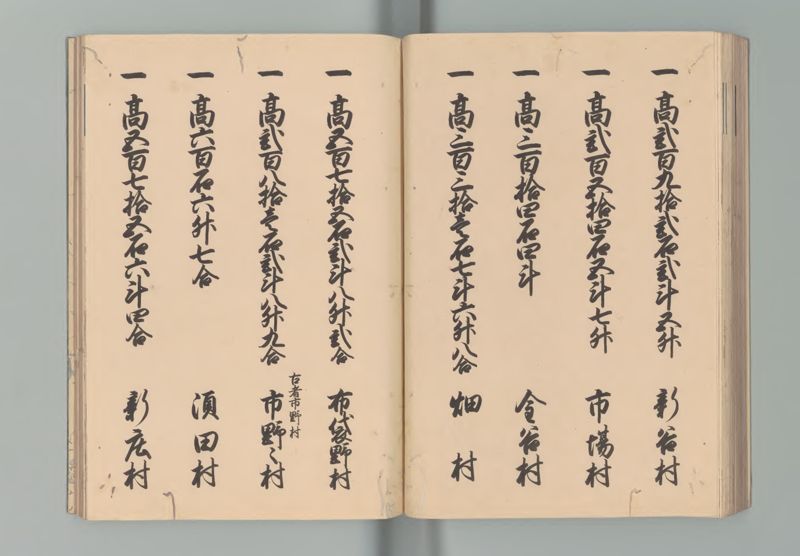 一 高弐百九拾弐石弐斗五升 新谷村
一 高弐百五拾四石五斗七升 市場村
一 高三百拾四石四斗 金谷村
一 高三百三拾壱石七斗六升八合 畑村
一 高五百七拾五石弐斗八升弐合 布袋野村
古者市野村
一 高弐百八拾壱石弐斗八升九合 市野〻村
一 高六百石六升七合 須田村
一 高五百七拾五石六斗四合 新庄村